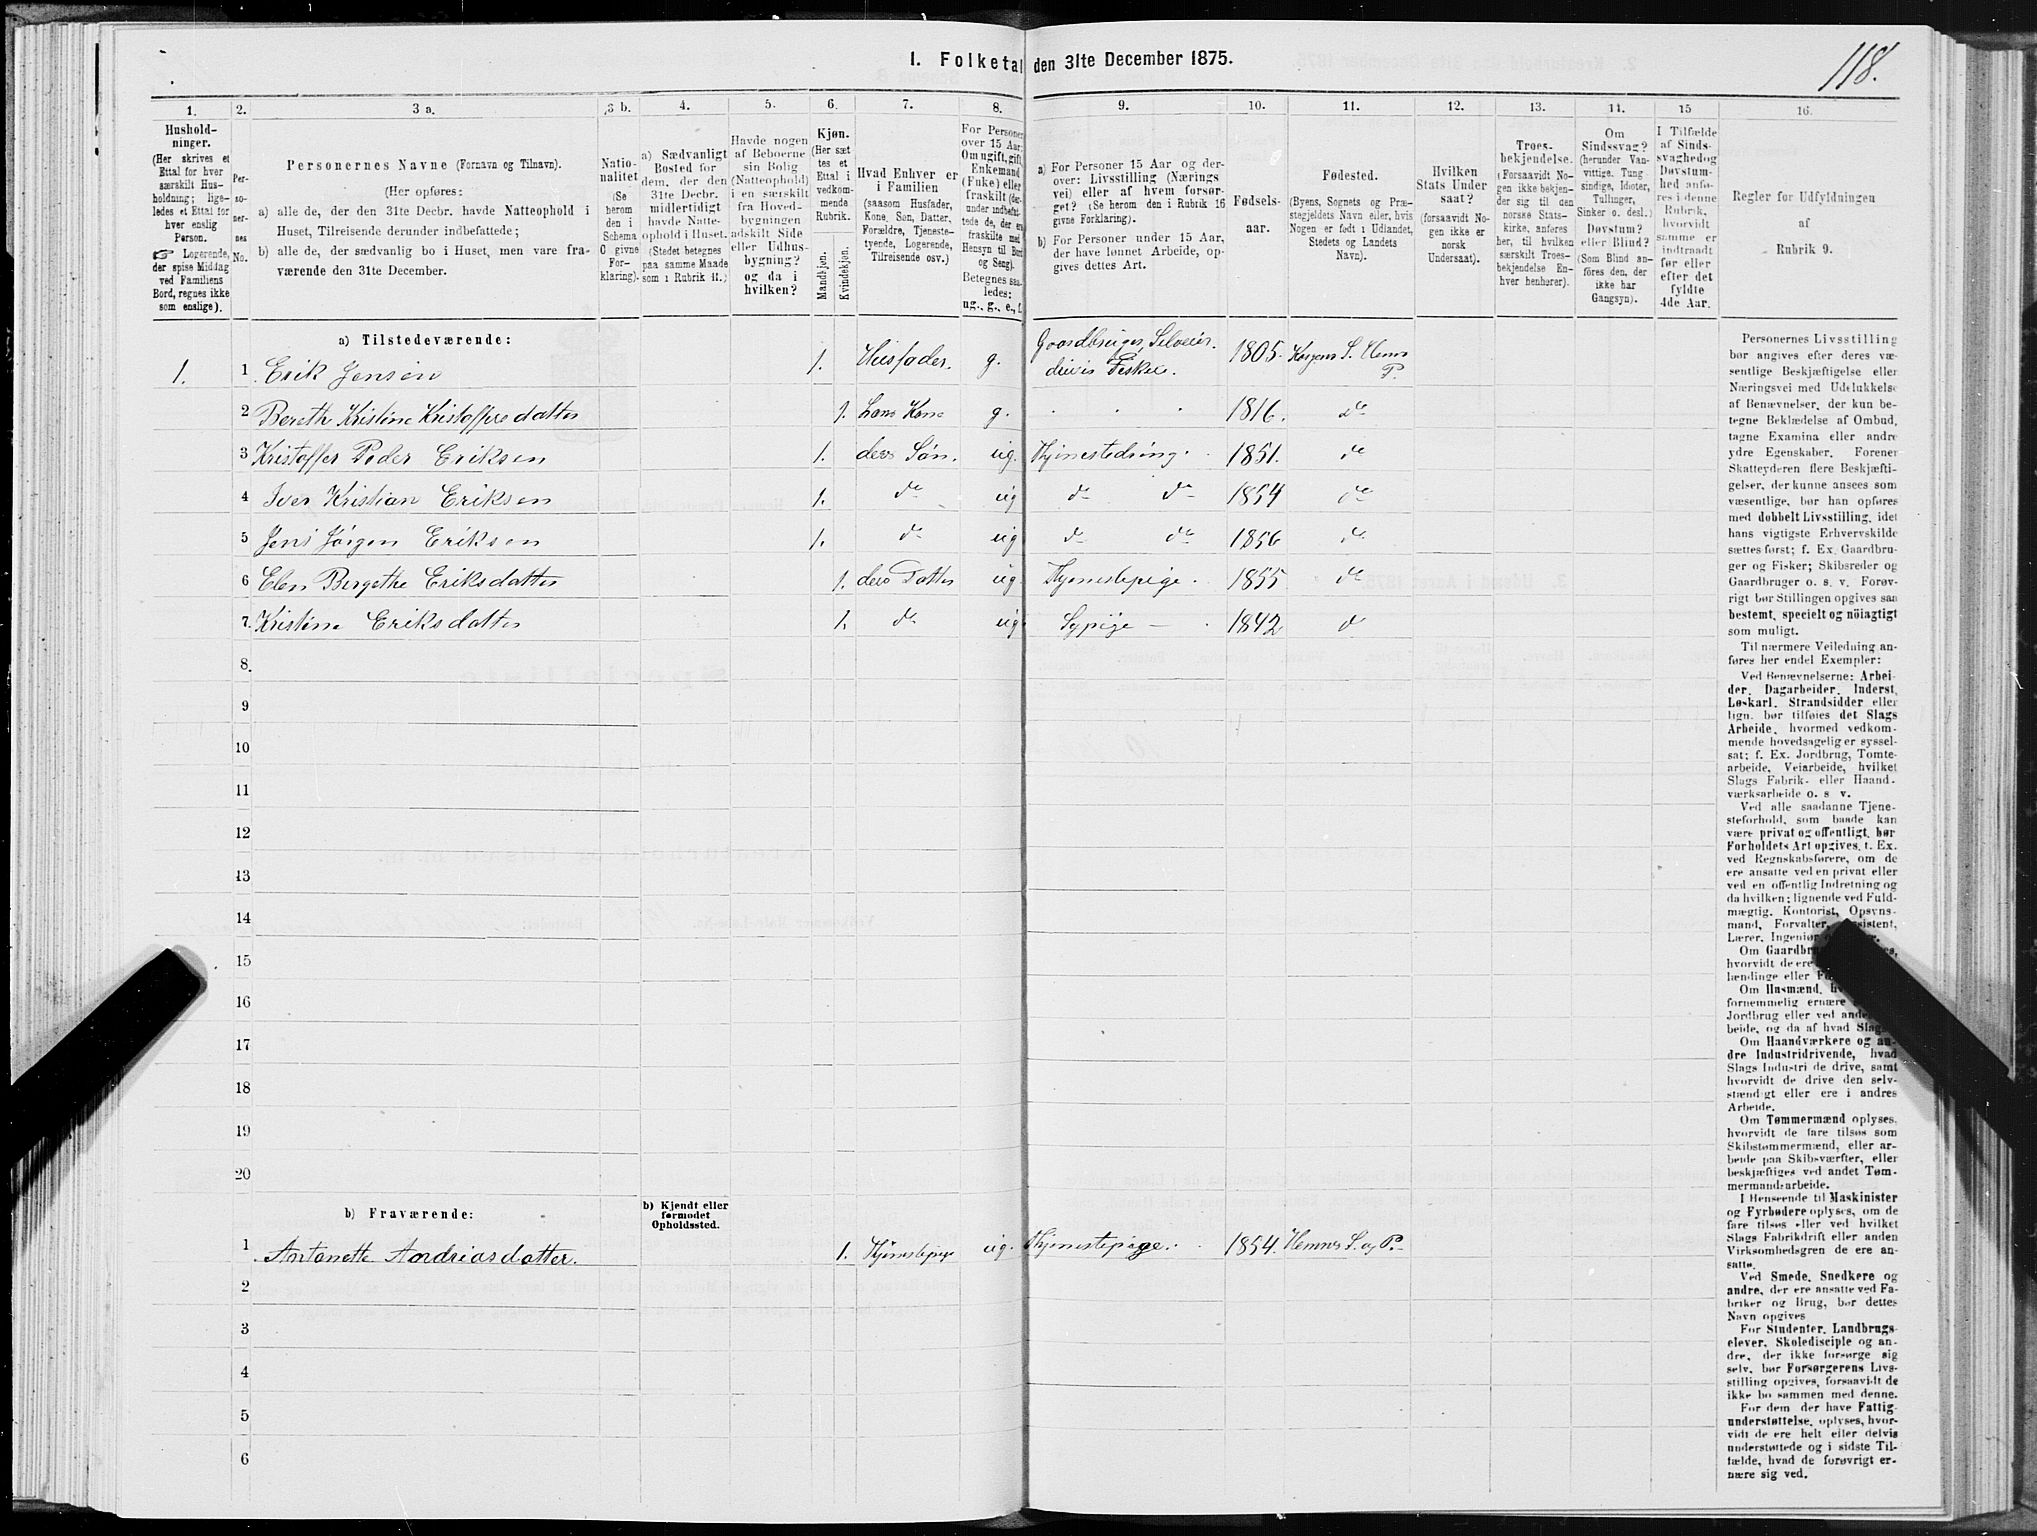 118.
1. Folketal den 31te December 1875.
1. 2. 3 a. 3 b. 4. 5. 6. 7. 8. 9. 10. 11. 12. 13. 14. 15 16.
Hushold-
ninger.
(Her skrives et
Ettal for hver
særskilt Hus-
holdning; lige-
ledes et Ettal for
hver enslig
Person.
☞ Logerende,
der spise Middag
ved Familiens
Bord, regnes ikke
som enslige).
Per-
so-
ner-
nes
No.
Personernes Navne (Fornavn og Tilnavn).
(Her opføres:
a) alle de, der den 31te Decbr. havde Natteophold i
Huset, Tilreisende derunder indbefattede;
b) alle de, der sædvanlig bo i Huset, men vare fra-
værende den 31te December.
Natio-
nalitet
(Se
herom
den i
Schema
O givne
For-
klaring).
a) Sædvanligt
Bosted for
dem, der den
31te Decbr.
midlertidigt
havde Natte-
ophold i Huset.
(Stedet betegnes
paa samme Maade
som i Rubrik 11.)
Havde nogen
af Beboerne
sin Bolig
(Natteophold)
i en særskilt
fra Hoved-
bygningen
adskilt Side
eller Udhus-
bygning?
og da i
hvilken?
Kjøn.
(Her sæt
tes et
Ettal i
vedkom-
mende
Rubrik.
Mandkjøn.
Kvindekjøn.
Hvad Enhver er
i Familien
(saasom Husfader,
Kone, Søn, Datter,
Forældre, Tjeneste-
tyende, Logerende,
Tilreisende osv.)
For Personer
over 15 Aar:
Om ugift, gift,
Enkemand
(Enke) eller
fraskilt (der-
under indbefat-
tede de, der ere
fraskilte med
Hensyn til Bord
og Seng).
Betegnes saa-
ledes:
ug., g., e., f.
a) For Personer 15 Aar og der-
over: Livsstilling (Nærings
vei) eller af hvem forsør-
get? (Se herom den i Rubrik 16
givne Forklaring).
b) For Personer under 15 Aar,
der have lønnet Arbeide, op-
gives dettes Art.
Fødsels-
aar.
Fødested.
(Byens, Sognets og Præ-
stegjeldets Navn eller, hvis
Nogen er født i Udlandet,
Stedets og Landets
Navn).
Hvilken
Stats Under
saat?
(forsaavidt No-
gen ikke er
norsk
Undersaat).
Troes-
bekjendelse.
(Forsaavidt No-
gen ikke bekjen-
der sig til den
norske Stats-
kirke, anføres
her, til hvilken
særskilt Troes-
bekjendelse En-
hver henhører).
Om
Sindssvag?
(herunder Van-
vittige, Tung
sindige, Idioter,
Tullinger,
Sinker o. desl.)
Døvstum?
eller Blind?
(Som Blind an-
føres den, der
ikke har
Gangsyn).
I Tilfælde
af Sinds-
svaghed og
Døvstum-
hed anfø-
res i denne
Rubrik,
hvorvidt
samme er
indtraadt
før eller
efter det
fyldte
4de Aar.
Regler for Udfyldningen
af
Rubrik 9.
a) Tilstedeværende:
1. 1 Erik Jensen 1. Husfader. g. Gaardbruger, Selveier. delvis Fisker. 1805. Korgens S. Hemn P.
2 Bereth Kristine Kristoffersdatter 1. hans Kone g. 1816. do
3 Kristoffer Peder Eriksen 1. deres Søn. ug. Tjenestedreng. 1851. do
4 Iver Kristian Eriksen 1. do ug do do 1854 do
5 Jens Jørgen Eriksen 1. do ug do do 1856 do
6 Elen Bergethe Eriksdatter 1. deres Datter ug. Tjenestepige. 1855 do
7. Kristine Eriksdatter 1. do ug Sypige 1842 do
8.
9
10
11
12
13
14
15
16
17
18
19
20
b) Fraværende:
b) Kjendt eller
formodet
Opholdssted.
1 Antonette Andriasdatter. 1. Tjenestepige ug. Tjenestepige. 1854. Hemnes S. og P.
2
3
4
5
6
Personernes Livsstilling
bør angives efter deres væ-
sentlige Beskjæftigelse eller
Næringsvei med Udelukkelse
af Benævnelser, der kun be-
tegne Beklædelse af Ombud,
tagne Examina eller andre
ydre Egenskaber. Forener
Skatteyderen flere Beskjæfti-
gelser, der kunne ansees som
væsentlige, bør han opføres
med dobbelt Livsstilling, idet
hans vigtigste Erhvervskilde
sættes først; f. Ex. Gaardbru-
ger og Fisker; Skibsreder og
Gaardbruger o. s. v. Forøv-
rigt bør Stillingen opgives saa
bestemt, specielt og nöiagtigt
som muligt.
Til nærmere Veiledning an-
føres her endel Exempler:
Ved Benævnelserne: Arbei-
der, Dagarbeider, Inderst,
Løskarl, Strandsidder eller
lign. bør tilføies det Slags
Arbeide, hvormed vedkom-
mende hovedsagelig er syssel-
sat; f. Ex. Jordbrug, Tomte-
arbeide, Veiarbeide, hvilket
Slags Fabrik- eller Haand-
værksarbeide o. s v.
Ved alle saadanne Tjene-
steforhold, som baade kan
være privat og offentligt, bør
Forholdets Art opgives, f. Ex.
ved Regnskabsførere, om de
ere ansatte ved en privat eller
ved en offentlig Indretning og
da hvilken; lignende ved Fuld-
mægtig, Kontorist, Opsyns-
mand, Forvalter, Assistent,
Lærer, Ingeniør
Om
hvorvidt de ere
lændinge eller
Om Husmænd,
fornemmelig ernære
Jordbrug eller ved
beide, og da af hvad Slags
Om Haandværkere og an-
dre Industridrivende, hvad
Slags Industri de drive, samt
hvorvidt de drive den selv-
stændigt eller ere i andres
Arbeide.
Om Tømmermænd oplyses,
hvorvidt de fare tilsøs som
Skibstømmermænd, eller ar-
beide paa Skibsværfter, eller
beskjæftiges ved andet Tøm-
mermandsarbeide.
I Henseende til Maskinister
og Fyrbødere oplyses, om de
fare tilsøs eller ved hvilket
Slags Fabrikdrift eller anden
Virksomhedsgren de ere an-
satte.
Ved Smede, Snedkere og
andre, der ere ansatte ved Fa-
briker og Brug, bør dettes
Navn opgives
For Studenter, Landbrugs-
elever, Skoledisciple og an-
dre, der ikke forsørge sig
selv, bør Forsørgerens Livs-
stilling opgives, forsaavidt de
ikke bo sammen med denne.
For dem der have Fattig-
understøttelse, oplyses, hvor-
vidt de ere helt eller delvis
understøttede og i sidste Til-
fælde, hvad de forøvrigt er-
nære sig ved.